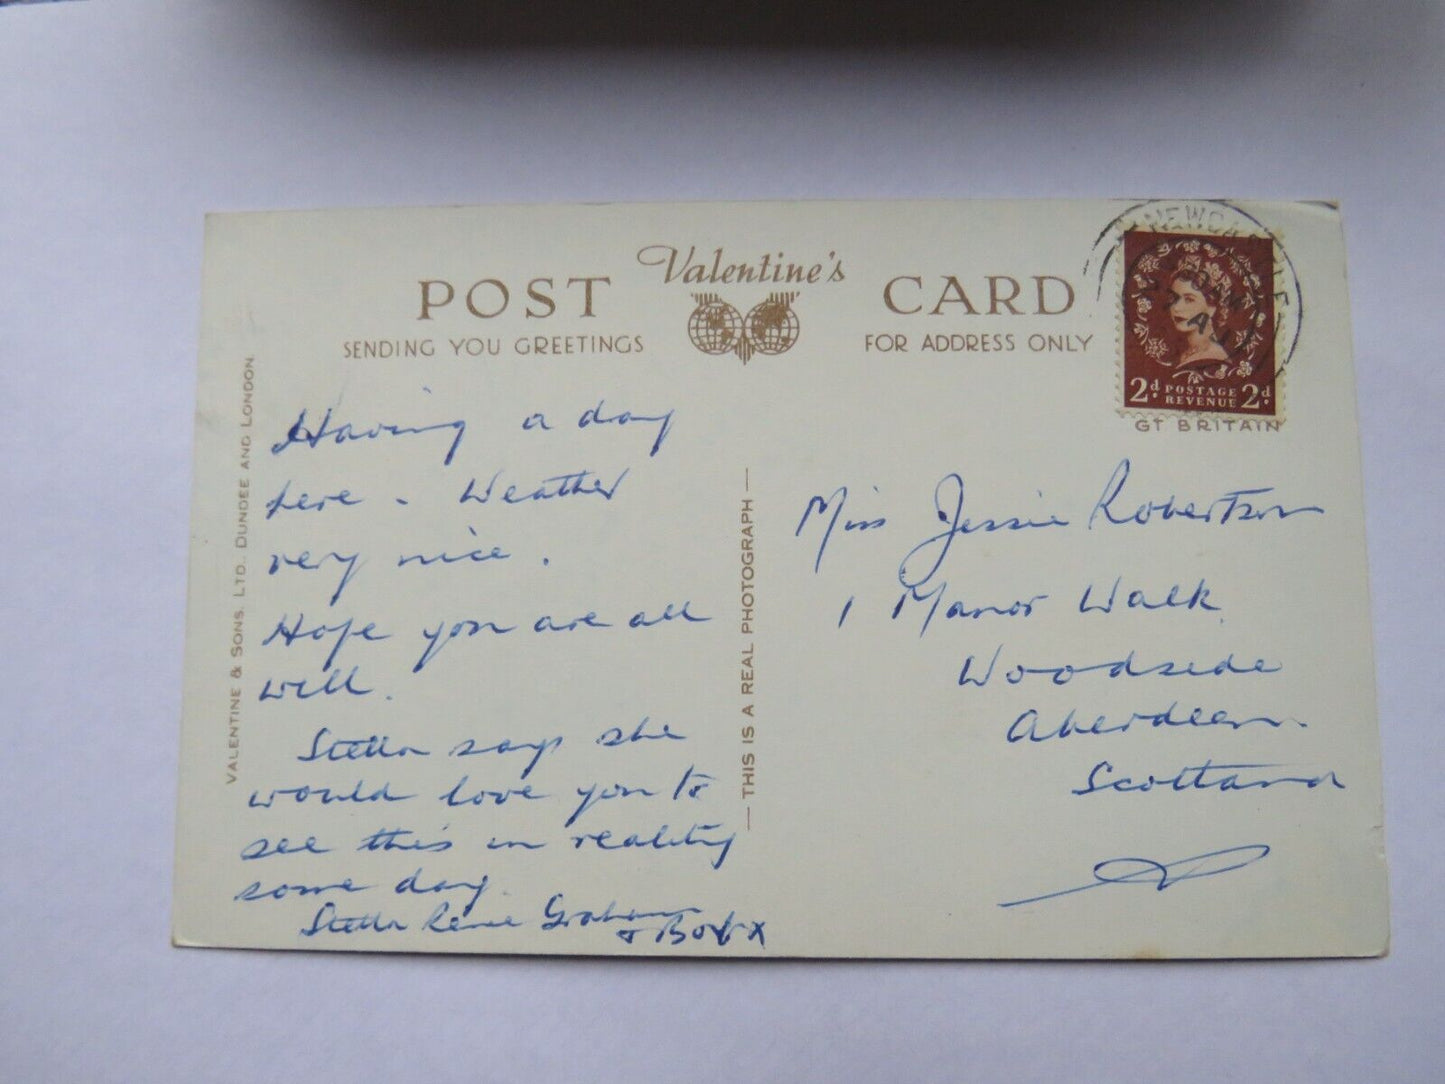 POST
Valentine's
CARD
SENDING YOU GREETINGS
FOR ADDRESS ONLY
NEWCASTLE
2d. POSTAGE REVENUE 2d.
GT BRITAIN
VALENTINE & SONS, LTD., DUNDEE AND LONDON.
THIS IS A REAL PHOTOGRAPH
Having a day
here - Weather
very nice.
Hope you are all
well.
Stella says she
would love you to
see this in reality
some day.
Stella Rene Graham
+ Bob x
Miss Jessie Robertson
1 Manor Walk
Woodside
Aberdeen.
Scotland